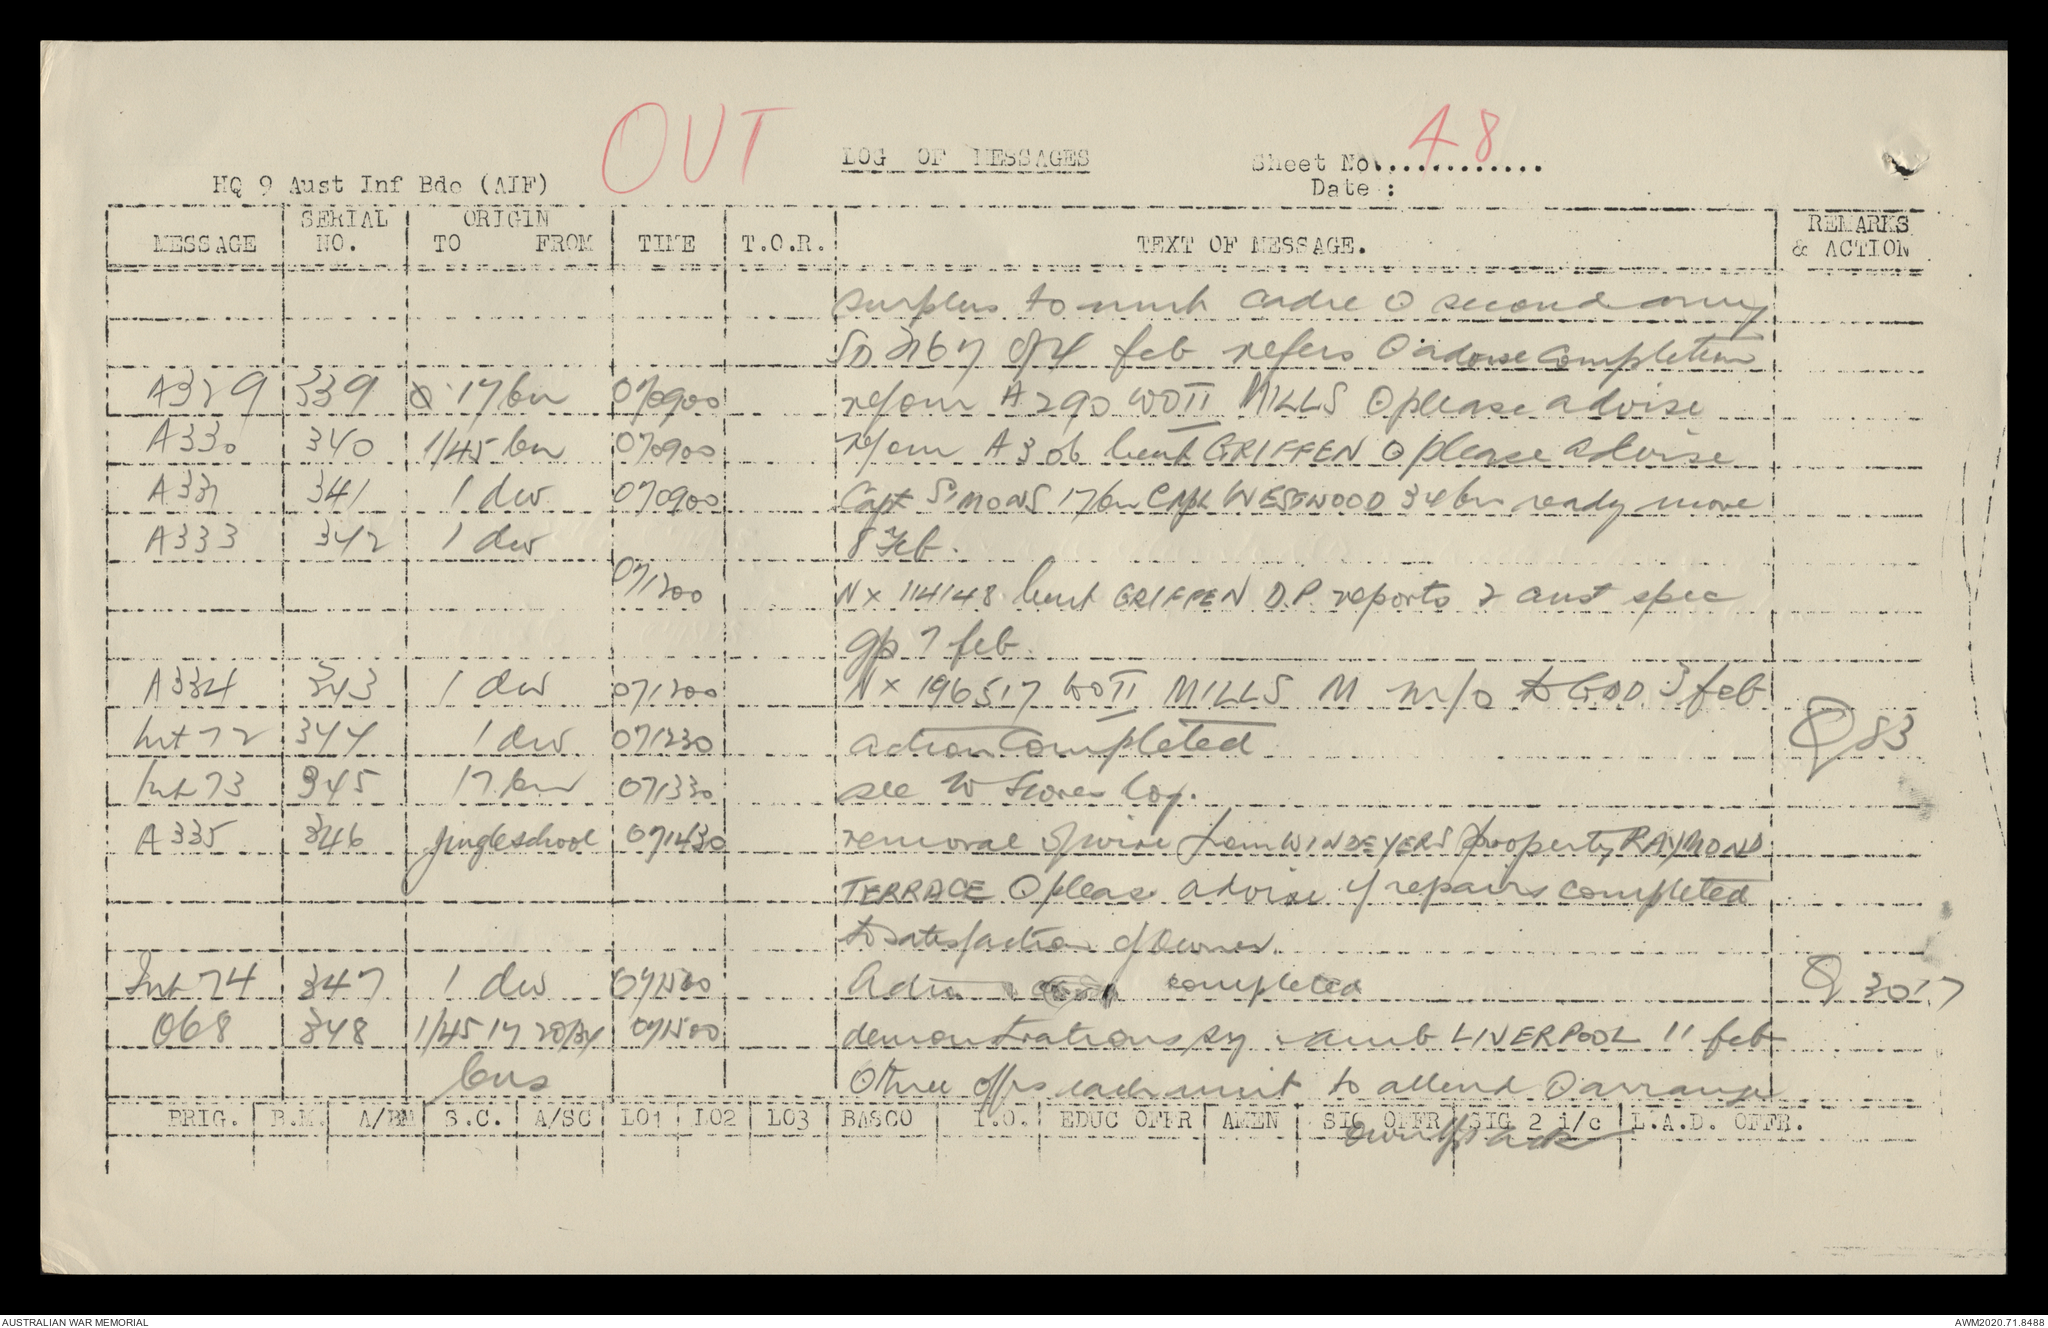 OUT
LOG OF MESSAGES
Sheet No.............. 48
HQ 9 Aust Inf Bde (AIF)
Date :
MESSAGE | SERIAL NO. | ORIGIN TO FROM | TIME | T.O.R. | TEXT OF MESSAGE. | REMARKS & ACTION
surplus to unit cadre O second army
SD 3167 of 4 feb refers O advise completion
A329 339 17 bn 070900 re/our A290 WOII MILLS O please advise
A330 340 1/45 bn 070900 re/our A306 lieut GRIFFEN O please advise
A331 341 1 div 070900 Capt SIMONS 17 bn Capt WESTWOOD 34 bn ready move
A333 342 1 div 8 Feb.
071200 NX 114148 lieut GRIFFEN D.P. reports 2 aust spec
gp 7 feb.
A334 343 1 div 071200 NX 196517 WOII MILLS M m/o to GDD 3 feb
Int 72 344 1 div 071230 action completed Q 83
Int 73 345 17 bn 071330 see W Stores log.
A335 346 jungle school 071430 removal of wire from WINDEYERS property RAYMOND
TERRACE O please advise if repairs completed
to satisfaction of owner.
Int 74 347 1 div 071500 Action completed Q 3017
O68 348 1/45 17 20/34 071500 demonstrations by LIVERPOOL 11 feb
bns O three offrs each unit to attend O arrange
BRIG. | B.M. | A/BM | S.C. | A/SC | LO1 | LO2 | LO3 | BASCO | P.O. | EDUC OFFR | AMEN | SIG OFFR | SIG 2 i/c | L.A.D. OFFR.
own
AUSTRALIAN WAR MEMORIAL
AWM2020.71.8488